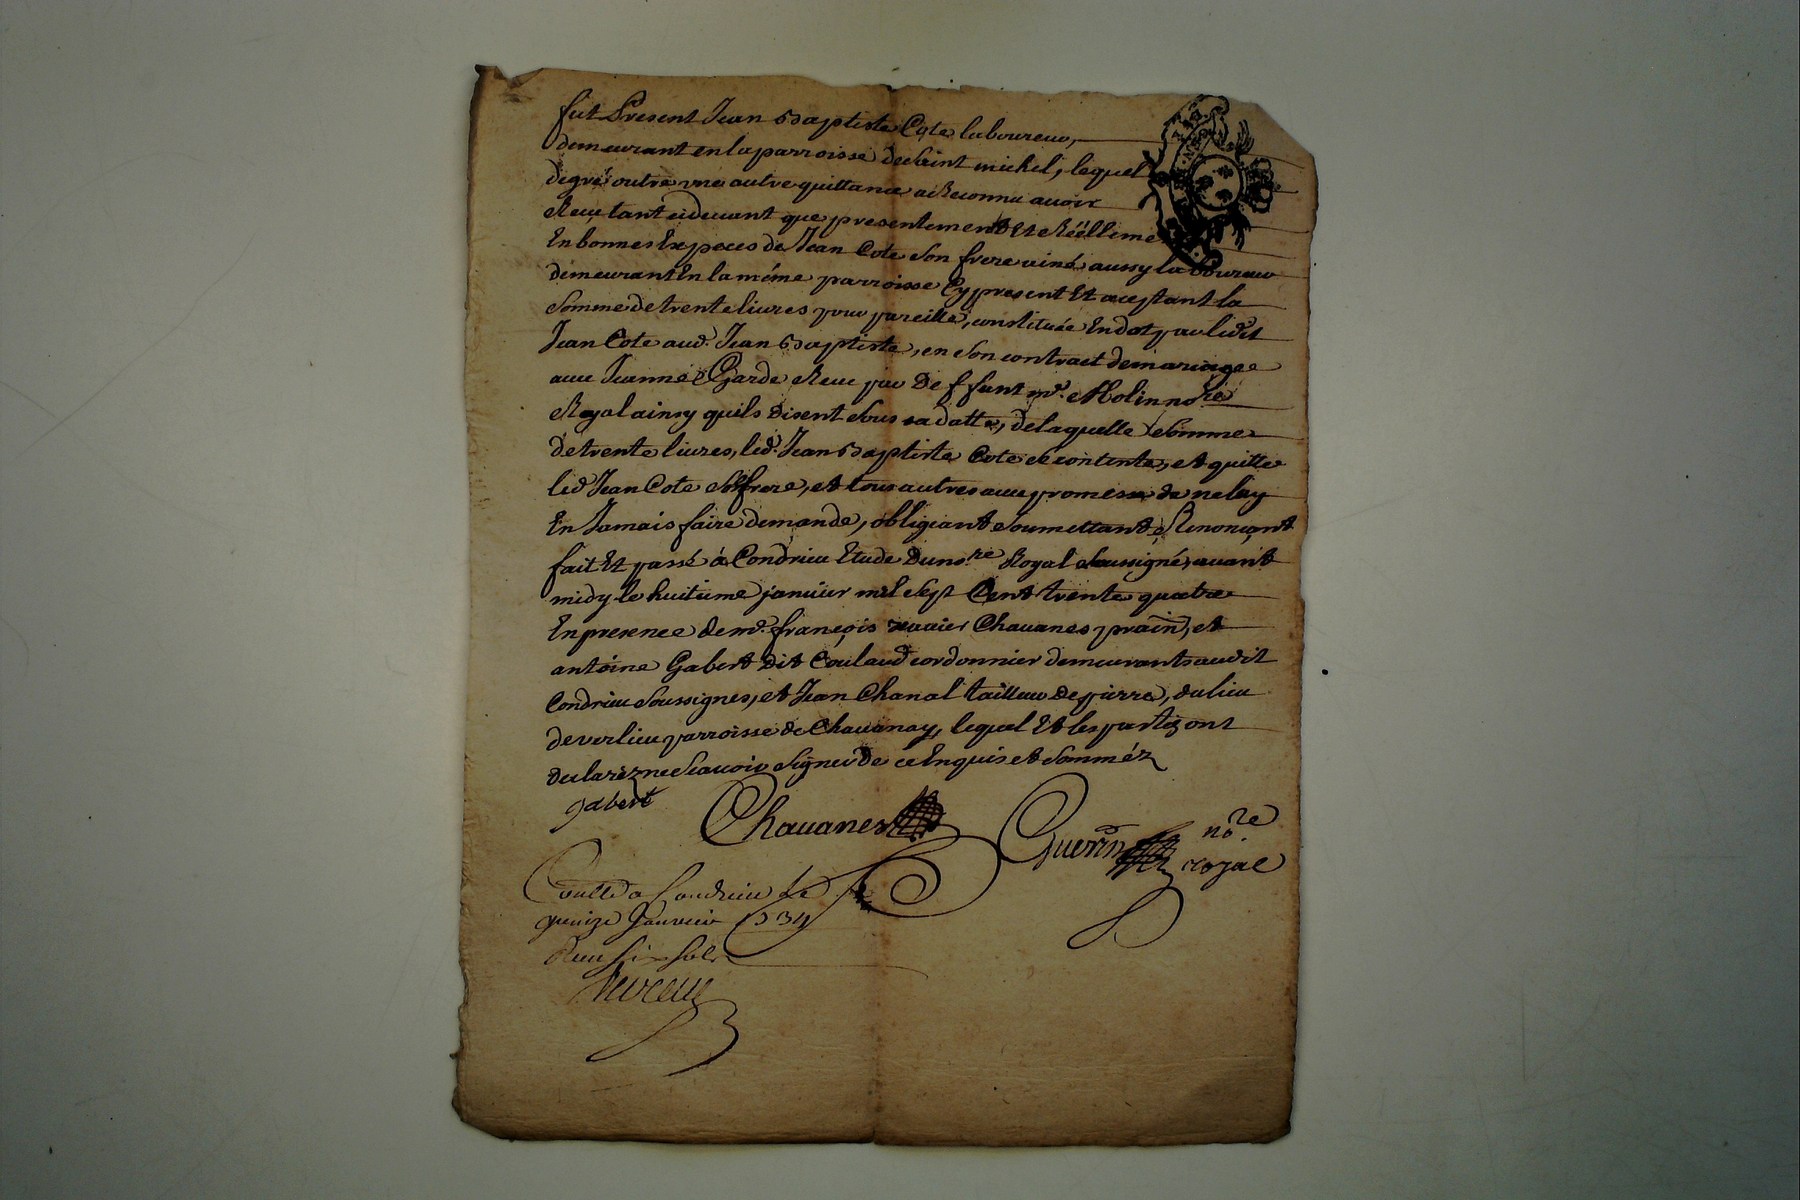 fut Present Jean Baptiste Cote laboureur,
demeurant en la parroisse de Saint michel, lequel
de gré outre une autre quittance a Reconnu avoir
Reçu tant cidevant que presentement Et Rééllemen
En bonnes Especes de Jean Cote son frere ainé aussy laboureur
demeurant En la méme parroisse Cy present Et aceptant la
somme de trente livres pour pareille, constituée En dot par ledit
Jean Cote aud. Jean Baptiste, en son contract de mariage
avec Jeanne Garde Receu par Deffunt mr. Molin nore
Royal ainsy quils disent sous sa datte, de laquelle somme
de trente livres, led. Jean Baptiste Cote se contente, et quitte
led Jean Cote son frere, et tous autres avec promesse de ne luy
En Jamais faire demande, obligeant soumettant Renonçant
fait Et passé à Condrieu Etude du nore Royal soussigné, avant
midy le huitieme janvier mil sept Cent trente quatre
En presence de mr. françois xavier Chavanes pratn, et
antoine Gabert dit Coulaud cordonnier demeurants audit
Condrieu soussignes, et Jean Chanal tailleur de pierre, du lieu
de verlieu parroisse de Chavanay, lequel Et les parties ont
declarez ne Scavoir Signer de ce Enquis et Sommez
gabert Chavanes Guerin nore royal
Conllé a Condrieu Le
quinze Janvier 1734
Receu six sols